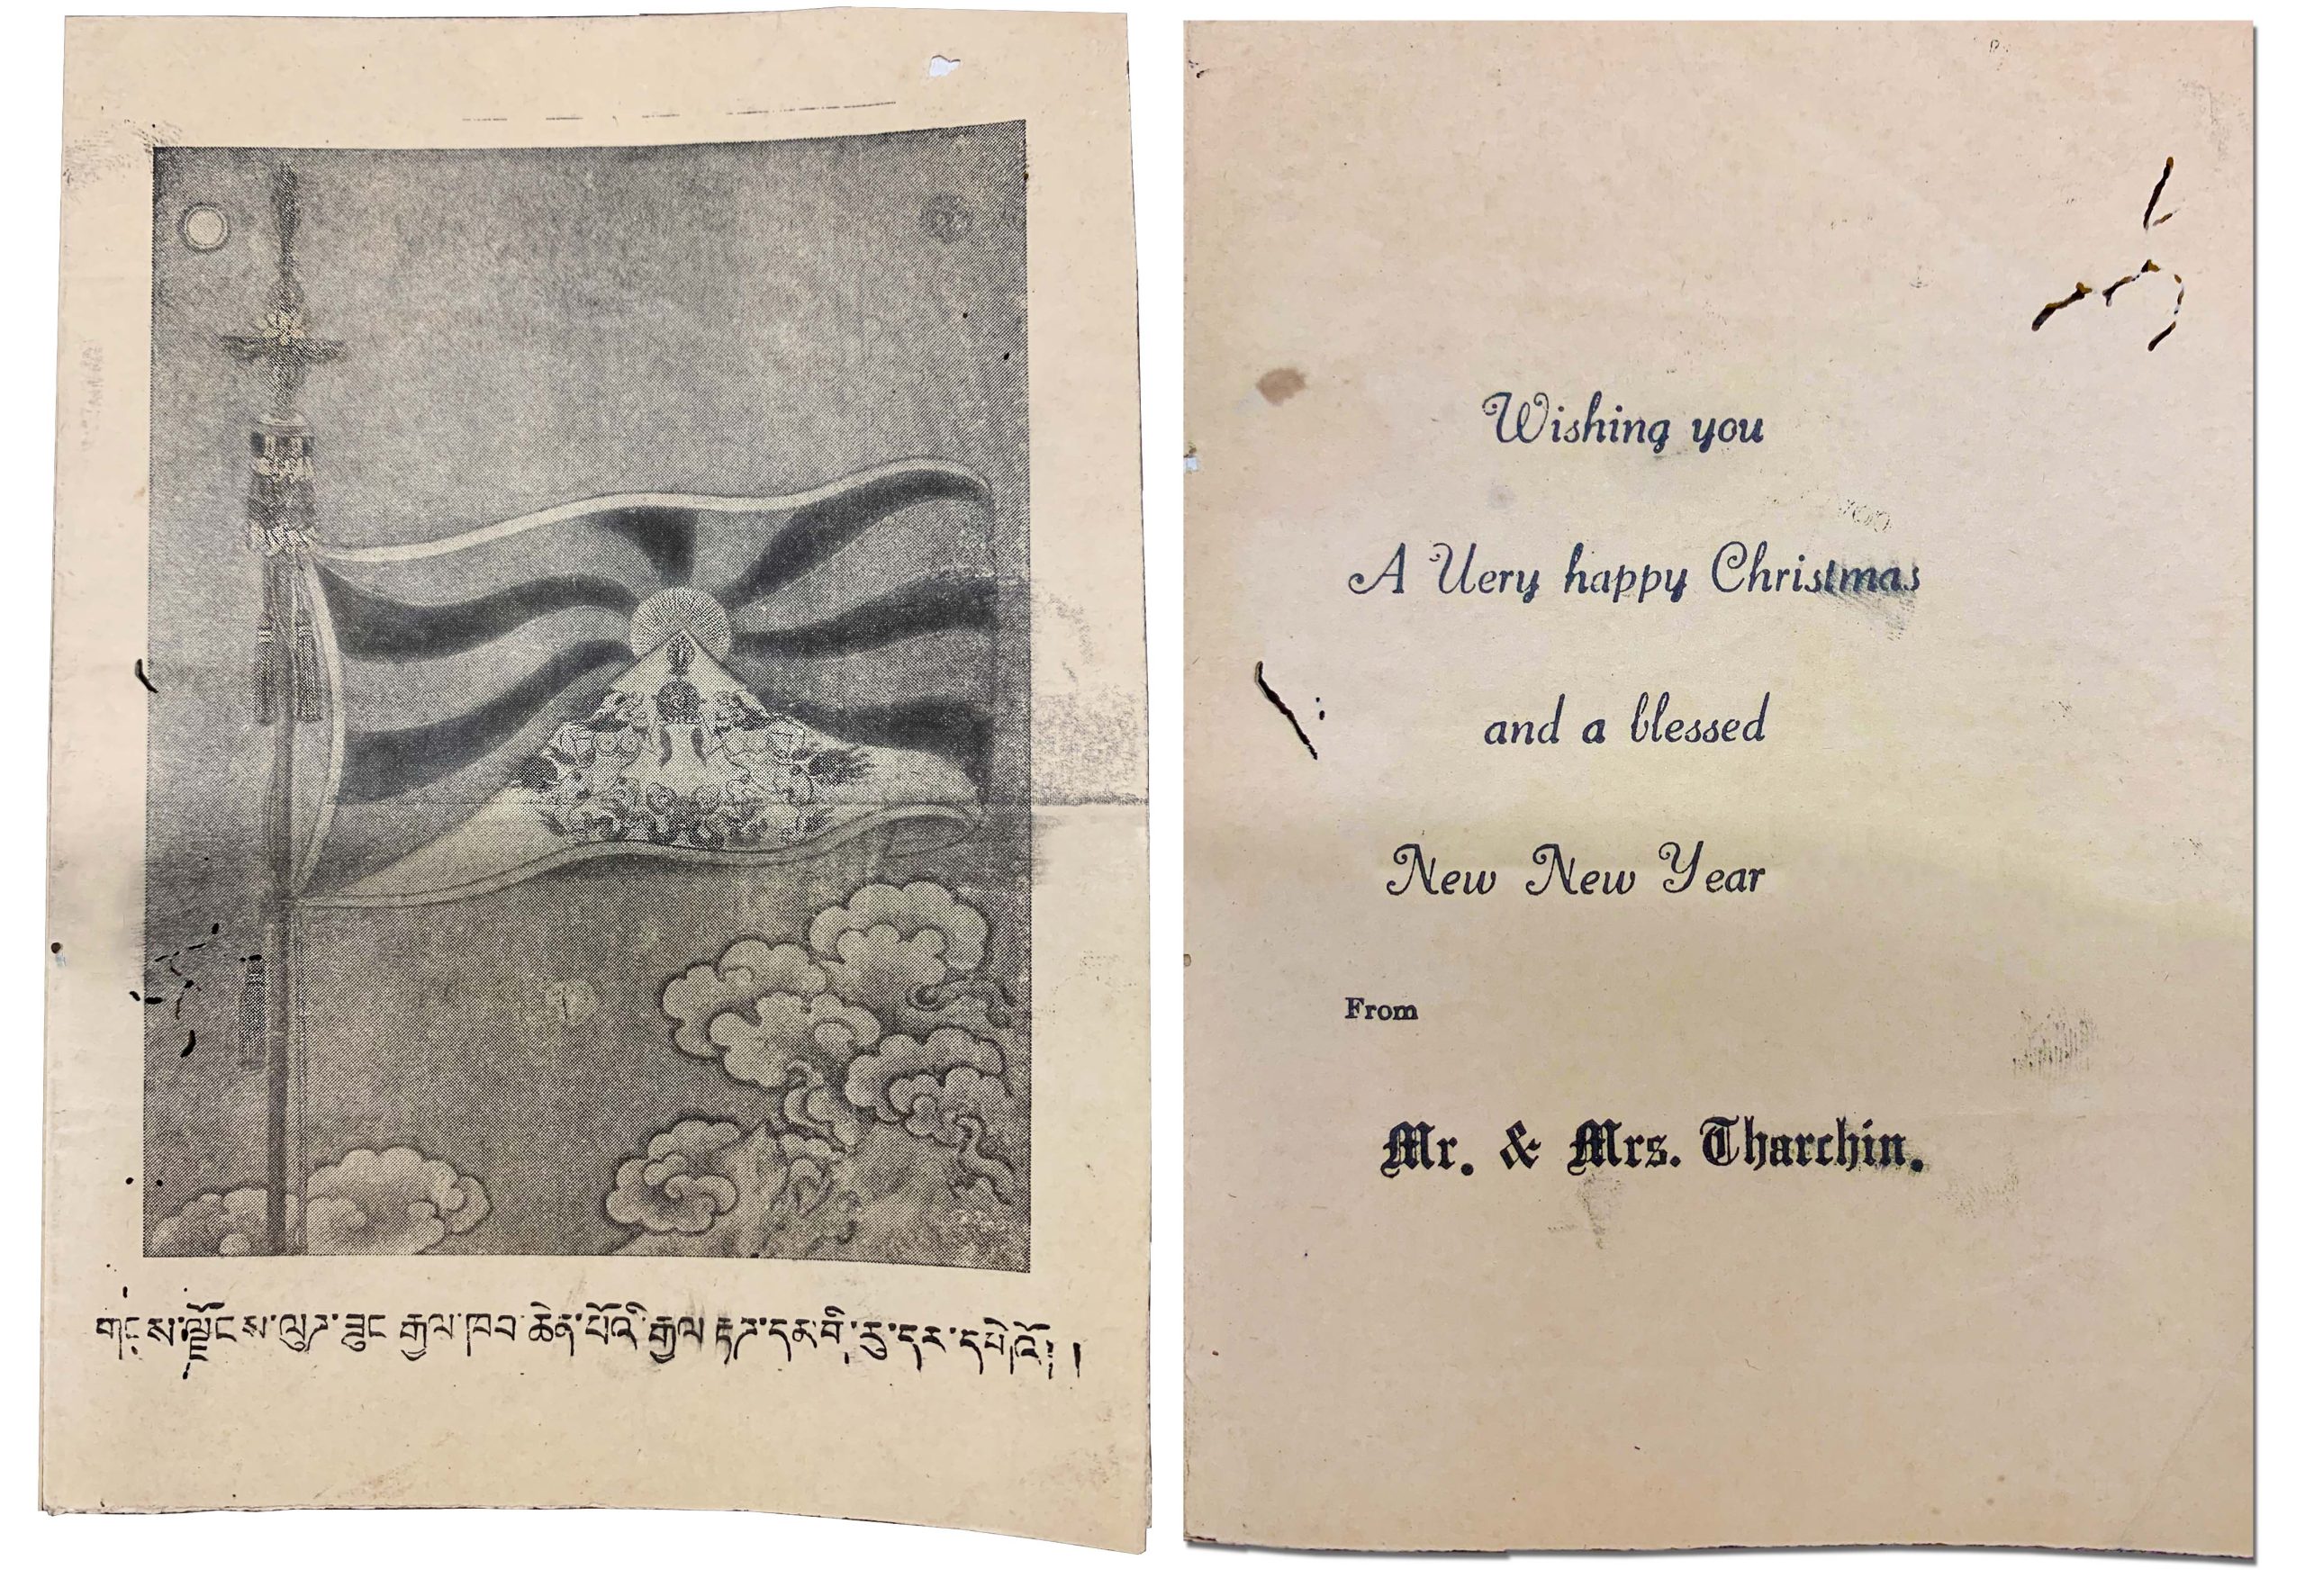 གངས་ལྗོངས་ལུག་ཟུང་རྒྱལ་ཁབ་ཆེན་པོའི་རྒྱལ་
Wishing you
A Very happy Christmas
and a blessed
New New Year
From
Mr. & Mrs. Tharchin.